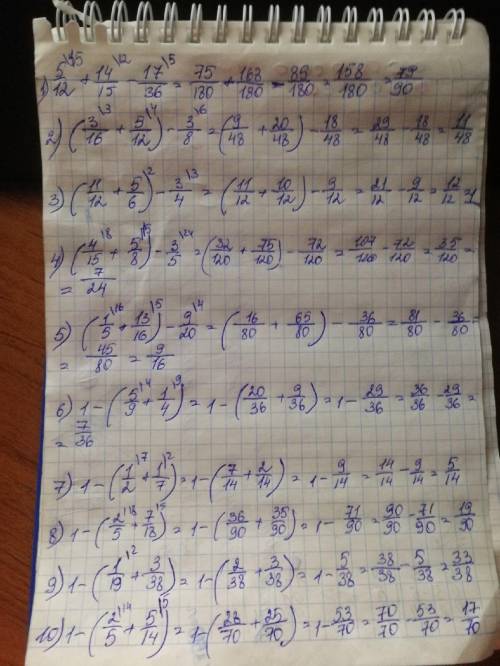 1) 5/12\15 + 14/15\12 - 17/36\5 = 75/180 + 168/180 - 85/180 = 158/180 = 79/90
2) (3/16\3 + 5/12\4) - 3/8\6 = (9/48 + 20/48) - 18/48 = 29/48 - 18/48 = 11/48
3) (11/12 + 5/6\2) - 3/4\3 = (11/12 + 10/12) - 9/12 = 21/12 - 9/12 = 12/12 = 1
4) (4/15\8 + 5/8\15) - 3/5\24 = (32/120 + 75/120) - 72/120 = 107/120 - 72/120 = 35/120 =
= 7/24
5) (1/5\16 + 13/16\5) - 9/20\4 = (16/80 + 65/80) - 36/80 = 81/80 - 36/80 =
= 45/80 = 9/16
6) 1 - (5/9\4 + 1/4\9) = 1 - (20/36 + 9/36) = 1 - 29/36 = 36/36 - 29/36 =
= 7/36
7) 1 - (1/2\7 + 1/7\2) = 1 - (7/14 + 2/14) = 1 - 9/14 = 14/14 - 9/14 = 5/14
8) 1 - (2/5\18 + 7/18\5) = 1 - (36/90 + 35/90) = 1 - 71/90 = 90/90 - 71/90 = 19/90
9) 1 - (1/19\2 + 3/38) = 1 - (2/38 + 3/38) = 1 - 5/38 = 38/38 - 5/38 = 33/38
10) 1 - (2/5\14 + 5/14\5) = 1 - (28/70 + 25/70) = 1 - 53/70 = 70/70 - 53/70 = 17/70